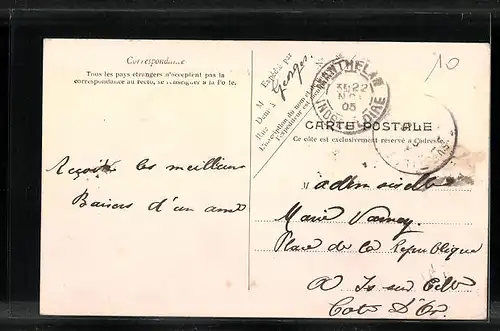 Correspondance
Tous les pays étrangers n'acceptent pas la
correspondance au recto, se renseigner à la Poste.
Reçois les meilleurs
Baisers d'un ami
Expédié par
Georges.
M
Dem t à
Rue
MANTHELAN
22
05
INDRE ET LOIRE
10
CARTE POSTALE
Ce côté est exclusivement réservé à l'adresse.
Mademoiselle
Marie
Place de la Republique
A Is sur Tille
Cote D'Or.